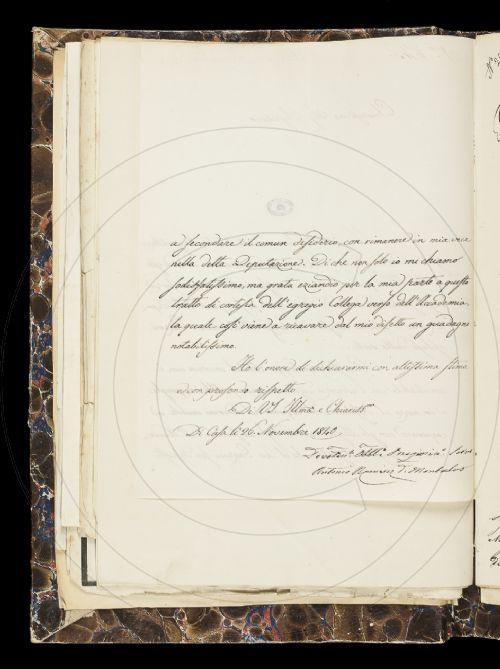 a secondare il comun desiderio, con rimanere in mia vece
nella detta Deputazione. Di che non solo io mi chiamo
sodisfatissimo, ma grato eziandio per la mia parte a questo
tratto di cortesia dell'egregio Collega verso dell'Accademia,
la quale così viene a ricavare dal mio difetto un guadagno
notabilissimo.
Ho l'onore di dichiararmi con altissima stima
e con profondo rispetto
Di V.S. Illma e Chiariss.
Di Casa li 26. Novembre 1840
Antonio